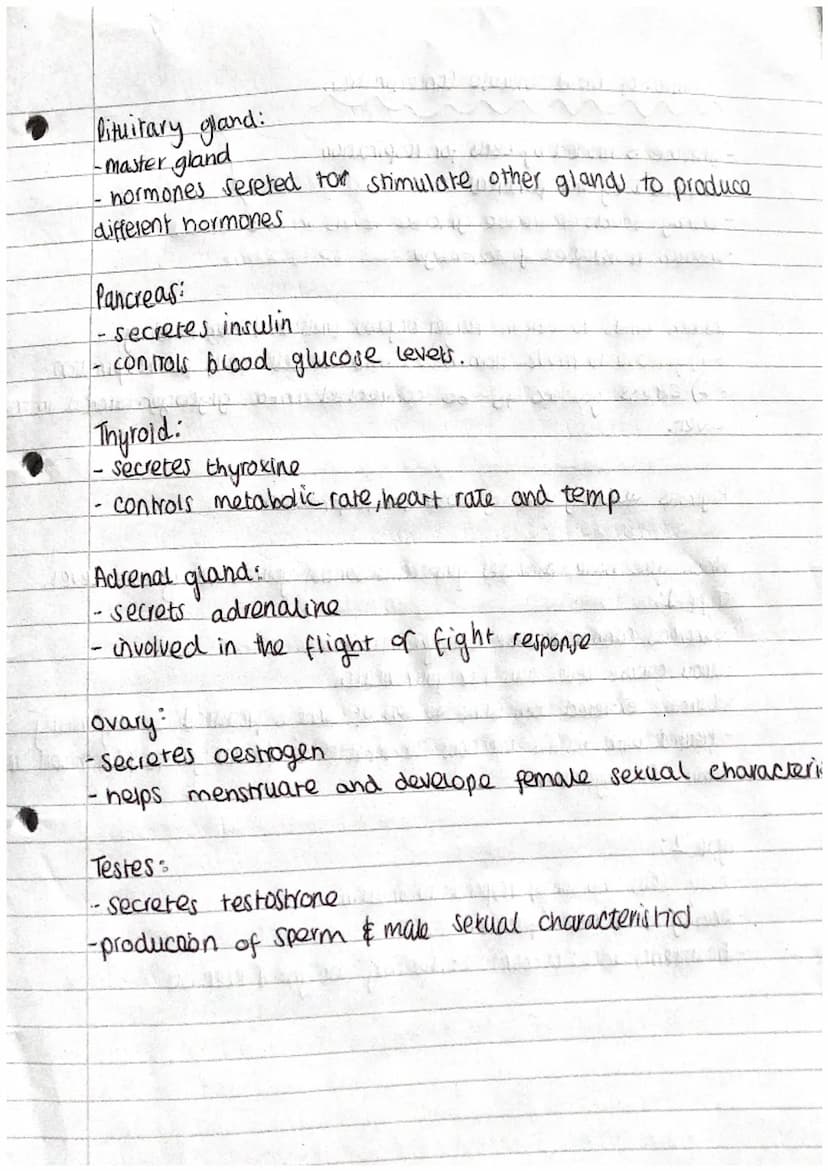 Pituitary gland:
- master gland
- hormones sereted tor stimulate other glands to produce
different hormones
Pancreas:
- secretes insulin
- controls blood glucose levels.
Thyroid:
- secretes thyroxine
- controls metabolic rate, heart rate and temp
Adrenal gland:
- secrets adrenaline
- involved in the flight or fight response
Ovary:
- secretes oestrogen
- helps menstruate and develope female sexual characteri
Testes:
- secretes testostrone
- production of sperm & male sexual characteristics